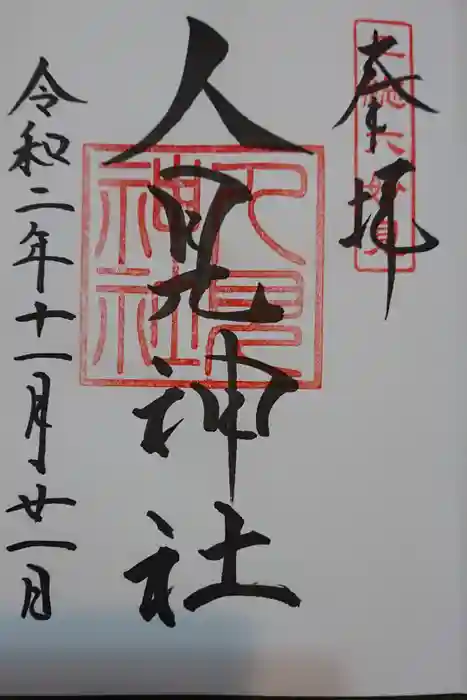 奉拝
人見神社
人見神社
令和二年十一月廿一日